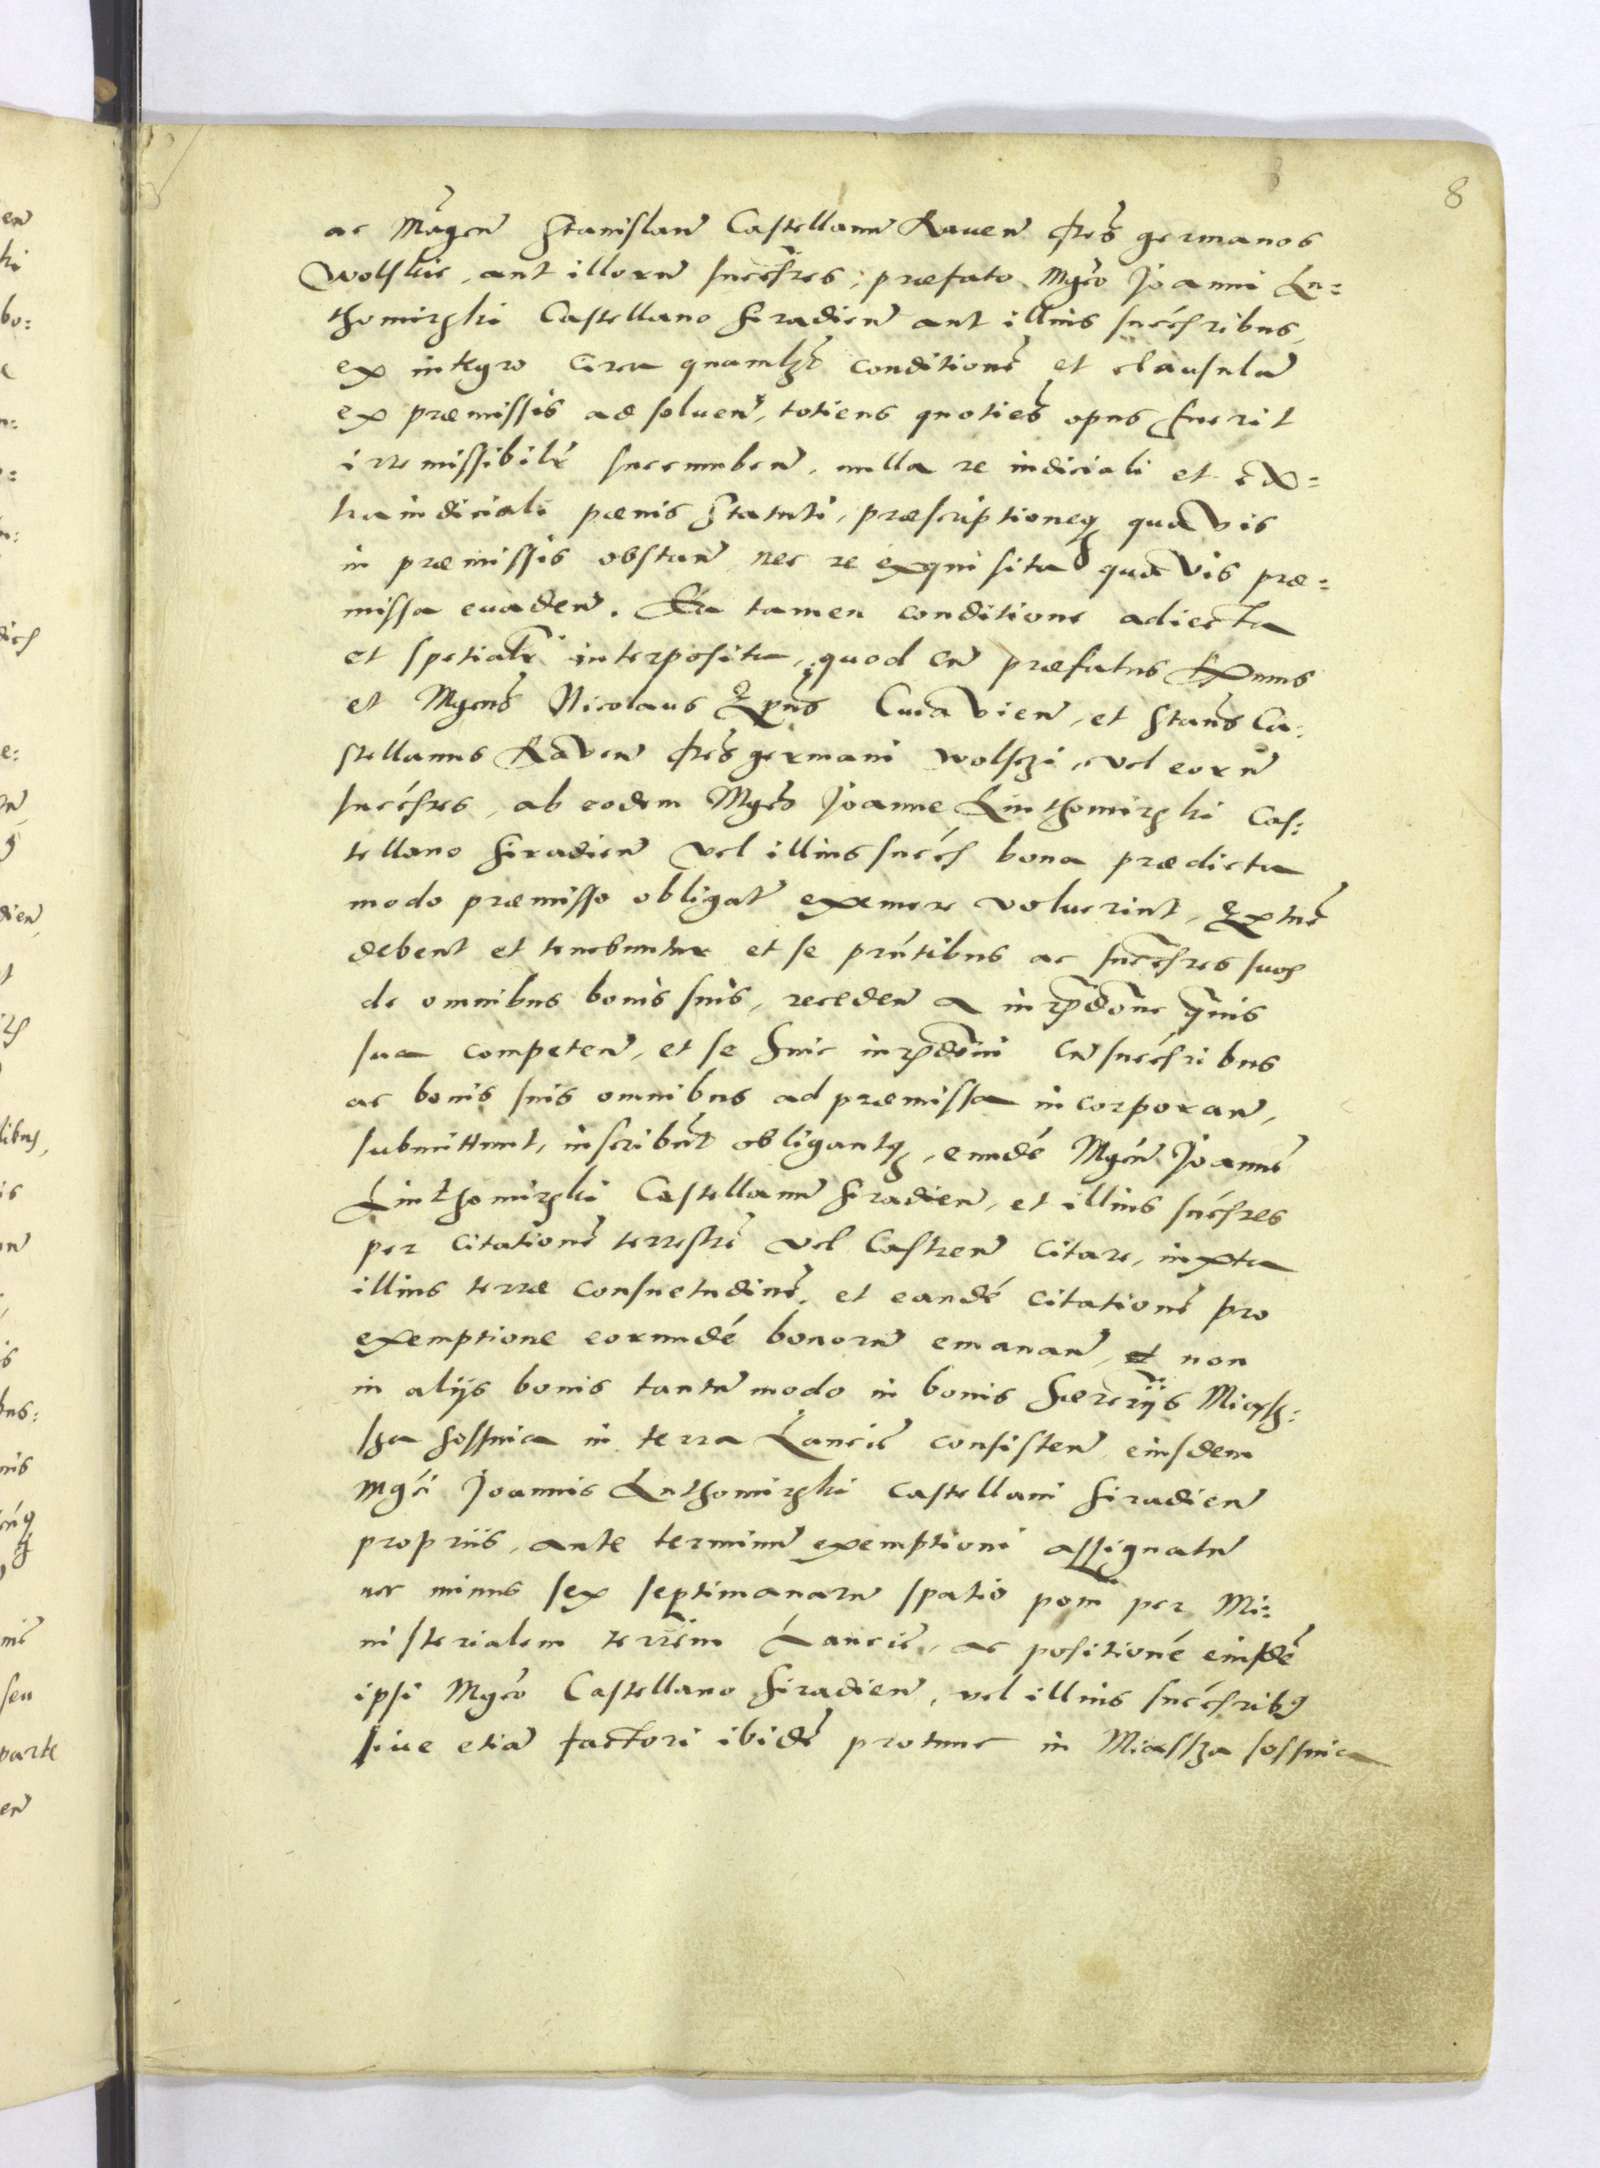 8
ac Mägcū Stanislaū Castellanū Rauen̄ fr̄es germanos
Wolskie, aut illorū succēs̄res, præfato Mgcō Joanni Lu=
thomirski Castellano Siradien̄ aut illius succēs̄ribus,
ex integro circa quamlz̄t conditionē et clausulā
ex præmissis ad soluen̄, totiens quotiēs opus fuerit
irremissibilr̄ succumben̄, nulla re iudiciali et ex=
traiudiciali pænis statuti, præscriptioneq quavis
in præmissis obstan̄ nec re exquisita quavis præ=
missa euaden̄. Ea tamen conditione adiecta
et spetialr̄ interposita, quod cū præfatus
et Mgcūs Nicolaus Ep̄us Cuiavien̄, et Stan̄s Ca=
stellanus Raven̄ fr̄es germani Wolsczi, vel eorū
succēs̄res, ab eodem Mgcō Joanne Linthomirski Cas=
tellano Siradien̄ vel illius succēs̄ bona prædicta
modo præmisso obligat̄ exemere voluerint, Extūc
debent et tenebuntur et se prn̄tibus ac succēs̄res suos
de omnibus bonis suis, receden̄ a iurs̄dōne quis
sua competen̄, et se huic iurs̄dōni cū succēs̄ribus
ac bonis suis omnibus ad præmissa incorporan̄,
submittunt, inscribūt obligantq, eundē Mgcū Joannē
Linthomirski Castellanū Siradien̄, et illius succēs̄res
per citationē terrestrē vel Castren̄ citare, iuxta
illius terræ consuetudinē, et eandē citationē pro
exemptione eorundē bonorū emanan̄, et non
in alijs bonis tantū modo in bonis hæred̄rijs Miass=
sza Sossnica in terra Lancic̄ consisten̄ eiusdem
Mgcī Joannis Luthomirski Castellani Siradien̄
propriis, ante terminū exemptioni assignatū
nec minus sex septimanarū spatio pon̄ per Mi=
nisterialem terrēm Lancic̄, ac positionē eiusdē
ipsi Mgcō Castellano Siradien̄, vel illius succēs̄ribq
siue etiā factori ibidē protunc in Miassza Sossnica